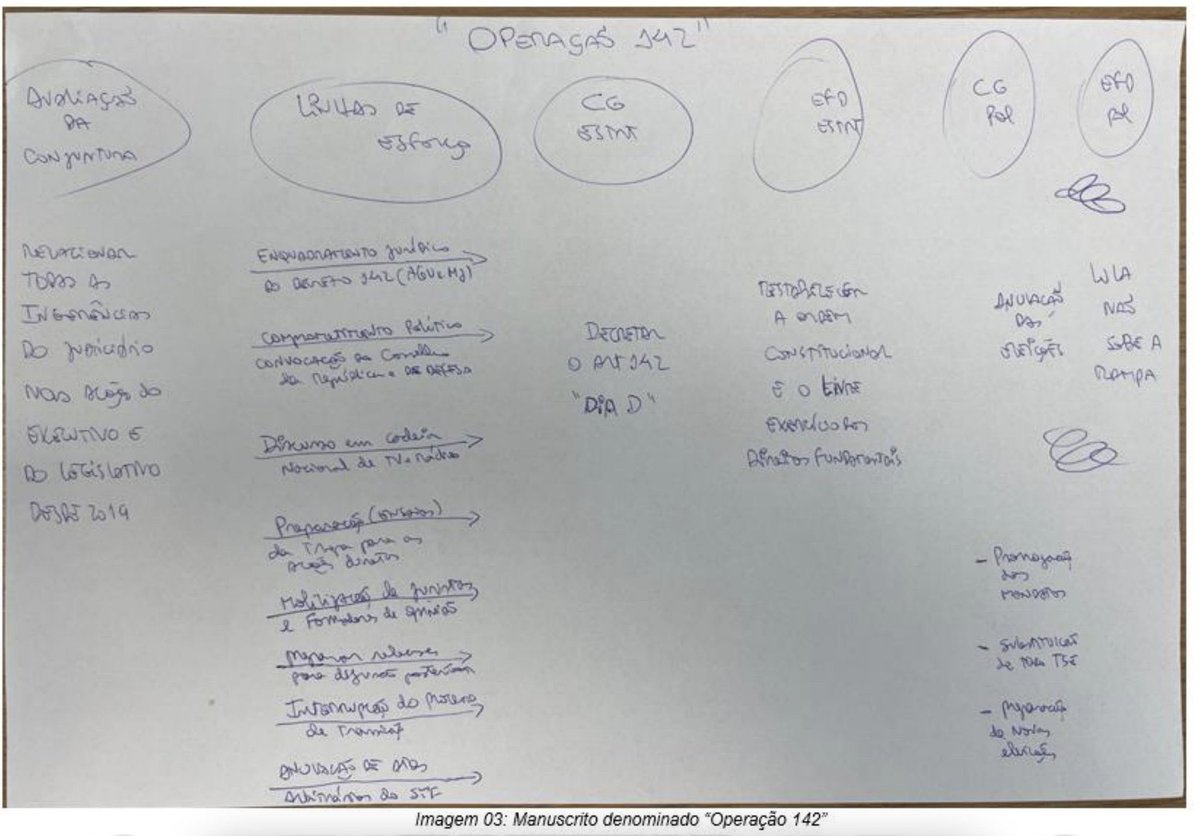 "OPERAÇÃO 142"
AVALIAÇÃO
DA
CONJUNTURA
LINHAS DE
ESFORÇO
CG
ESTRT
EFD
ESTRT
CG
POL
EFD
POL
RELACIONAR
TODAS AS
INGERÊNCIAS
DO JUDICIÁRIO
NAS AÇÃO DO
EXECUTIVO E
DO LEGISLATIVO
DESDE 2019
ENQUADRAMENTO JURÍDICO
DO DECRETO 142 (AGU e MJ)
COMPROMETIMENTO POLÍTICO
CONVOCAÇÃO DO CONSELHO
da República e DE DEFESA
Discurso em cadeia
Nacional de TV e Rádio
Preparação (ENSAIOS)
da Tropa para as
Ações diretas
Mobilização de juristas
e Formadores de opinião
Preparar
para
Interrupção do Processo
de Transição
ANULAÇÃO DE ATOS
Arbitrários do STF
DECRETAR
O ART 142
"DIA D"
RESTABELECER
A ORDEM
CONSTITUCIONAL
E O LIVRE
EXERCÍCIO DOS
DIREITOS FUNDAMENTAIS
ANULAÇÃO
DAS
ELEIÇÕES
LULA
NÃO
SOBE A
RAMPA
- Prorrogação
dos
MANDATOS
- SUBSTITUIÇÃO
de TODO TSE
- PREPARAÇÃO
de Novas
eleições
Imagem 03: Manuscrito denominado "Operação 142"